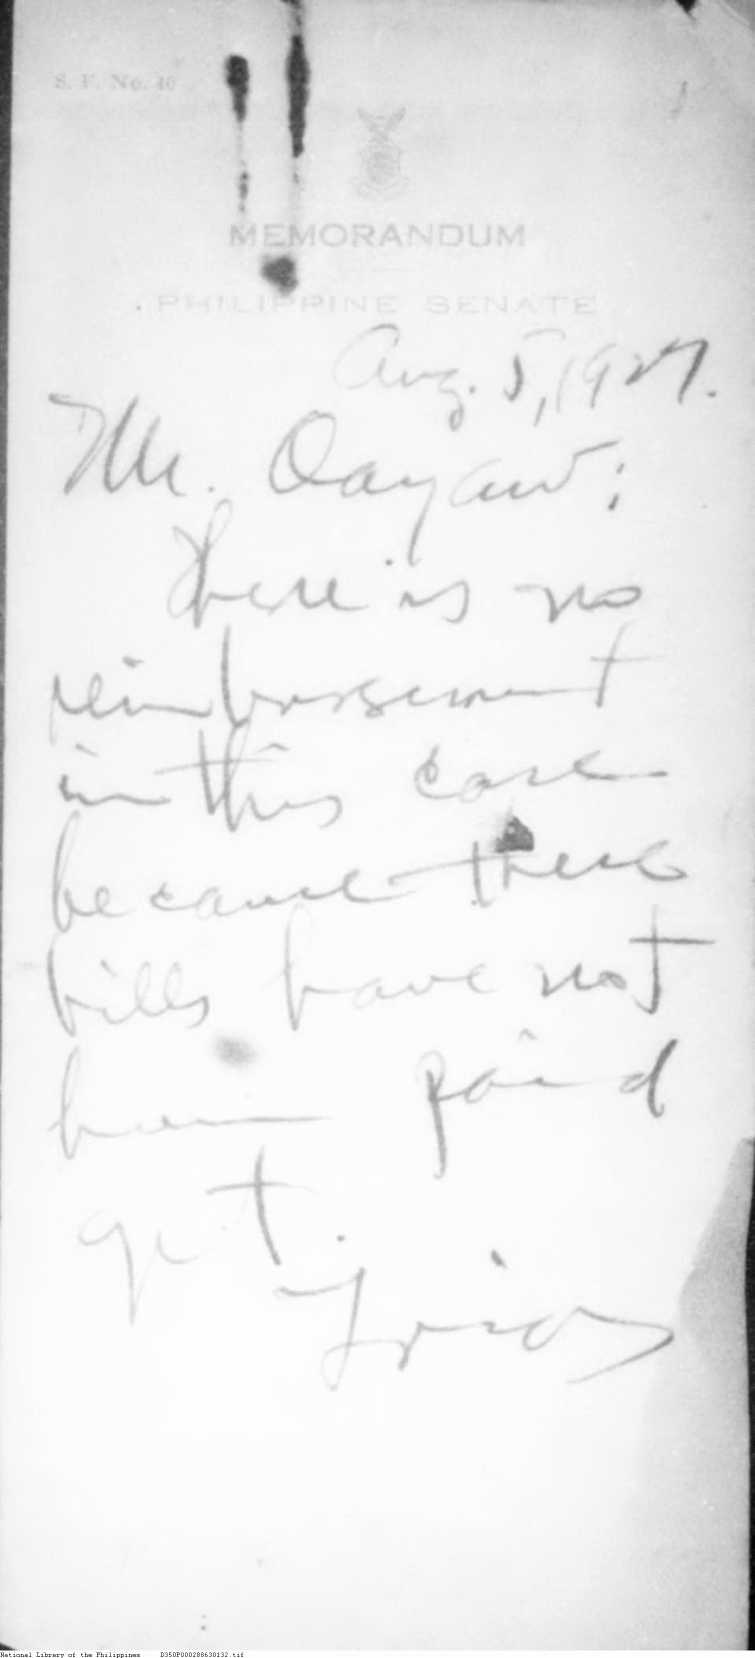 S. F. No. 40
MEMORANDUM
PHILIPPINE SENATE
Aug. 5, 1927.
Mr. Dayaw:
There is no
reimbursement
in this case
because these
bills have not
been paid
yet.
Frias
National Library of the Philippines D350P000288630132.tif